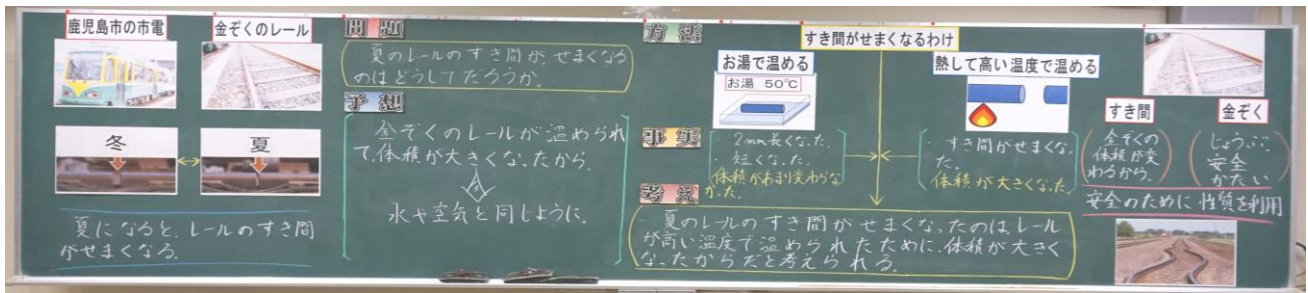 鹿児島市の市電
金ぞくのレール
冬
夏
夏になると、レールのすき間
がせまくなる。
問題
夏のレールのすき間が、せまくなる
のはどうしてだろうか。
予想
金ぞくのレールが温められ
て、体積が大きくなったから。
水や空気と同じように。
方法
すき間がせまくなるわけ
お湯で温める
お湯 50℃
熱して高い温度で温める
事実
・2mm長くなった。
・短くなった。
体積があまり変わらな
かった。
・すき間がせまくなっ
た。
体積が大きくなった。
考え
・夏のレールのすき間がせまくなったのは、レール
が高い温度で温められたために、体積が大きく
なったからだと考えられる。
すき間
金ぞくの
体積が変
わるから。
金ぞく
じょうぶ
安全
かたい
安全のために性質を利用